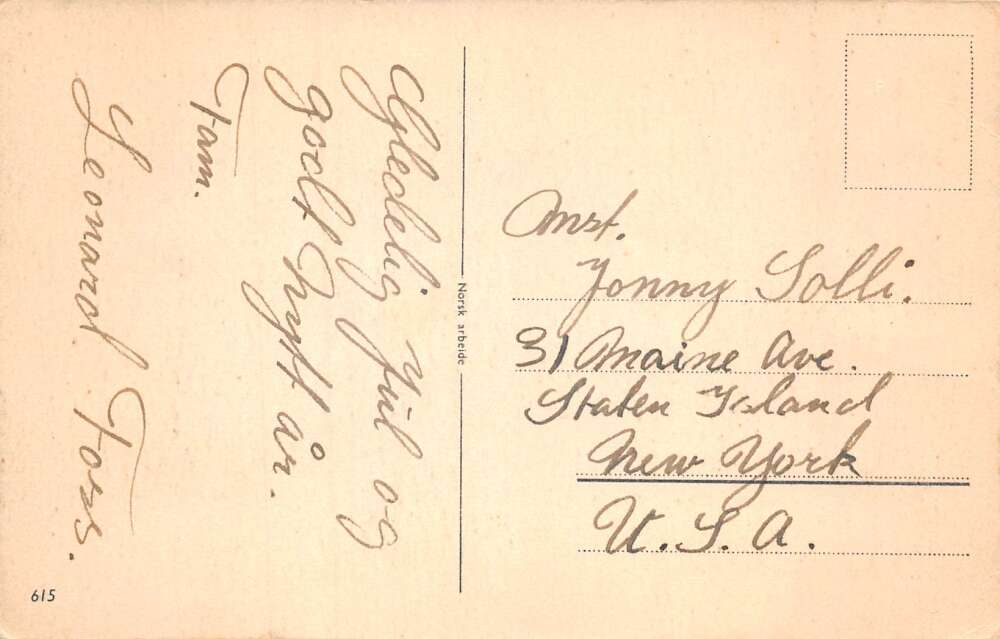 Gledelig Jul og
godt Nytt år.
Fam.
Leonard Foss.
Norsk arbeide
Mst.
Jonny Solli.
31 Maine Ave.
Staten Island
New York
U.S.A.
615